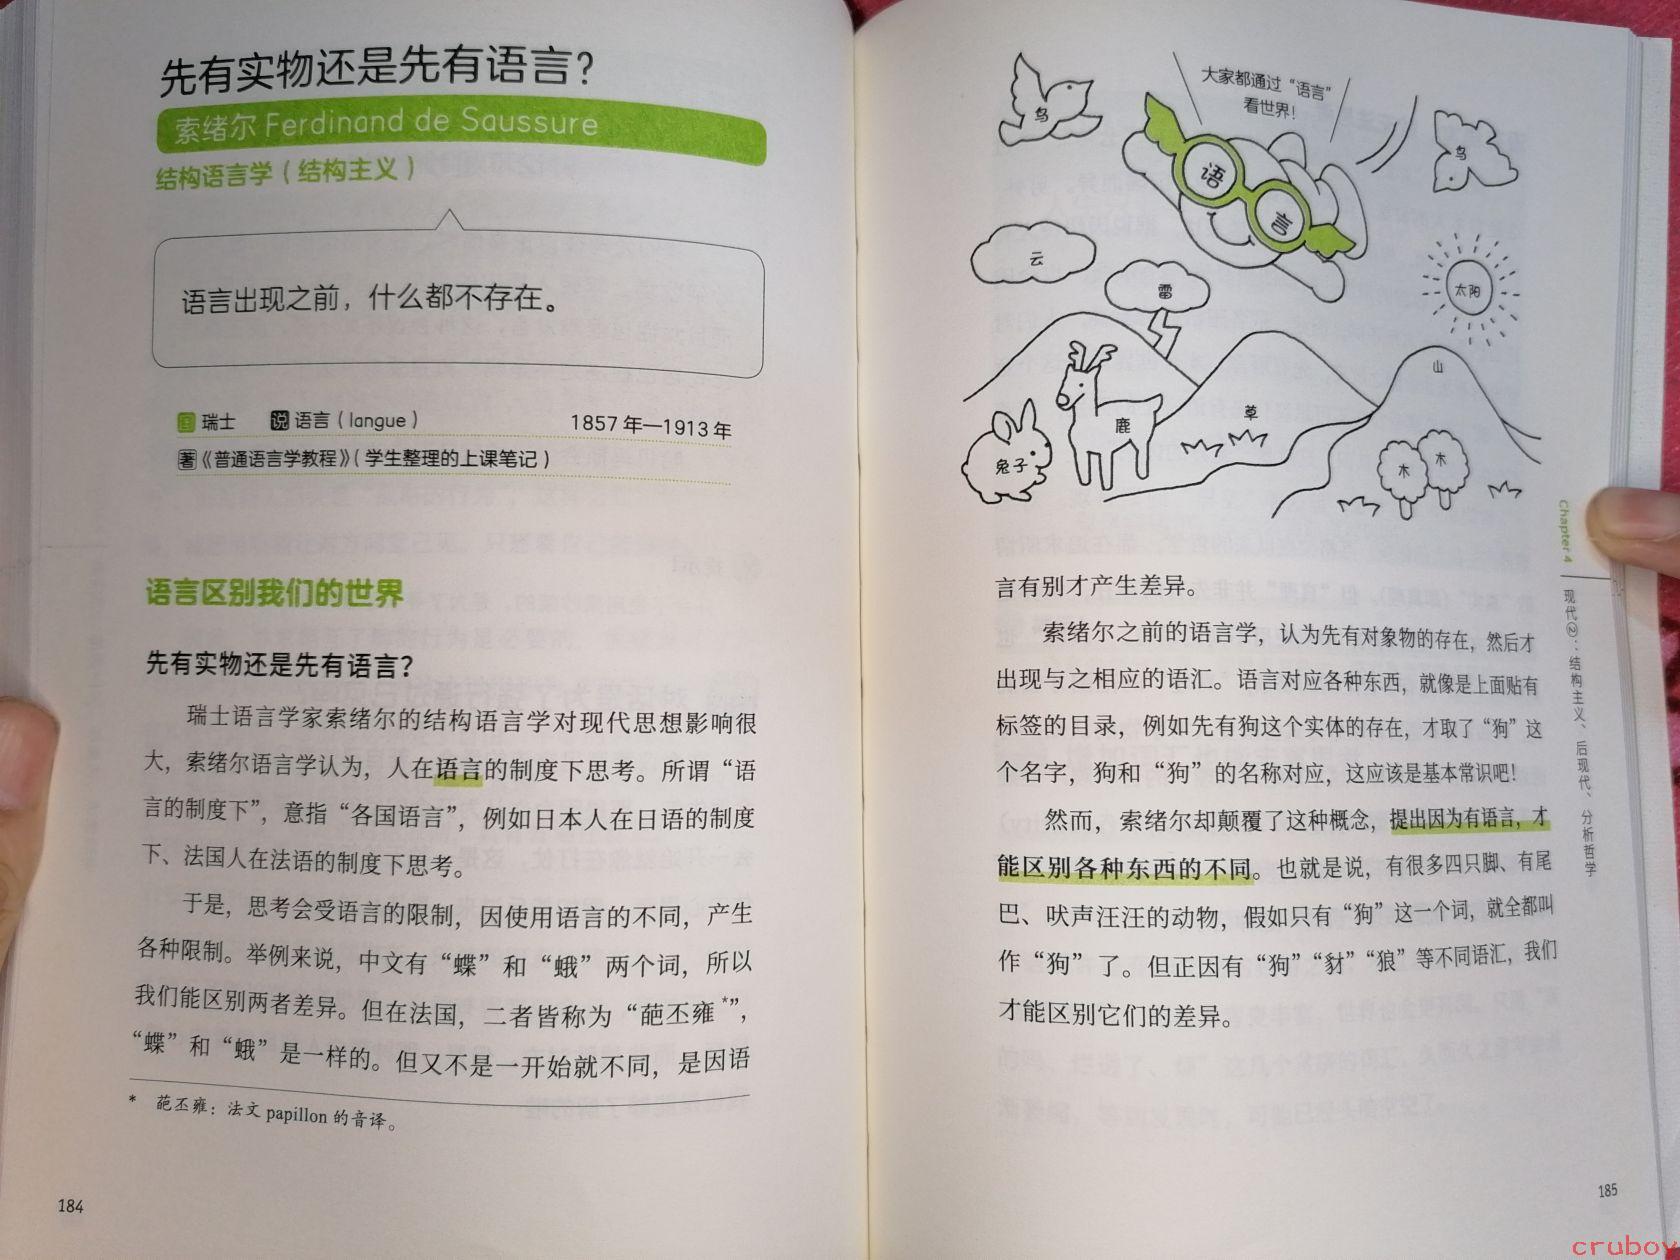 先有实物还是先有语言？
索绪尔 Ferdinand de Saussure
结构语言学（结构主义）
语言出现之前，什么都不存在。
国 瑞士 说 语言（langue） 1857 年—1913 年
著《普通语言学教程》（学生整理的上课笔记）
语言区别我们的世界
先有实物还是先有语言？
瑞士语言学家索绪尔的结构语言学对现代思想影响很
大，索绪尔语言学认为，人在语言的制度下思考。所谓“语
言的制度下”，意指“各国语言”，例如日本人在日语的制度
下、法国人在法语的制度下思考。
于是，思考会受语言的限制，因使用语言的不同，产生
各种限制。举例来说，中文有“蝶”和“蛾”两个词，所以
我们能区别两者差异。但在法国，二者皆称为“葩丕雍*”，
“蝶”和“蛾”是一样的。但又不是一开始就不同，是因语
* 葩丕雍：法文 papillon 的音译。
184
大家都通过“语言”
看世界！
鸟
鸟
语
言
云
雷
太阳
山
鹿
草
兔子
木
木
Chapter 4
现代②：结构主义、后现代、分析哲学
言有别才产生差异。
索绪尔之前的语言学，认为先有对象物的存在，然后才
出现与之相应的语汇。语言对应各种东西，就像是上面贴有
标签的目录，例如先有狗这个实体的存在，才取了“狗”这
个名字，狗和“狗”的名称对应，这应该是基本常识吧！
然而，索绪尔却颠覆了这种概念，提出因为有语言，才
能区别各种东西的不同。也就是说，有很多四只脚、有尾
巴、吠声汪汪的动物，假如只有“狗”这一个词，就全都叫
作“狗”了。但正因有“狗”“豺”“狼”等不同语汇，我们
才能区别它们的差异。
185
cruboy